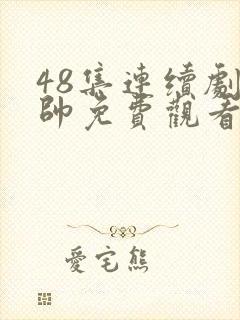 48集連續劇
帥免費觀看
愛宅熊